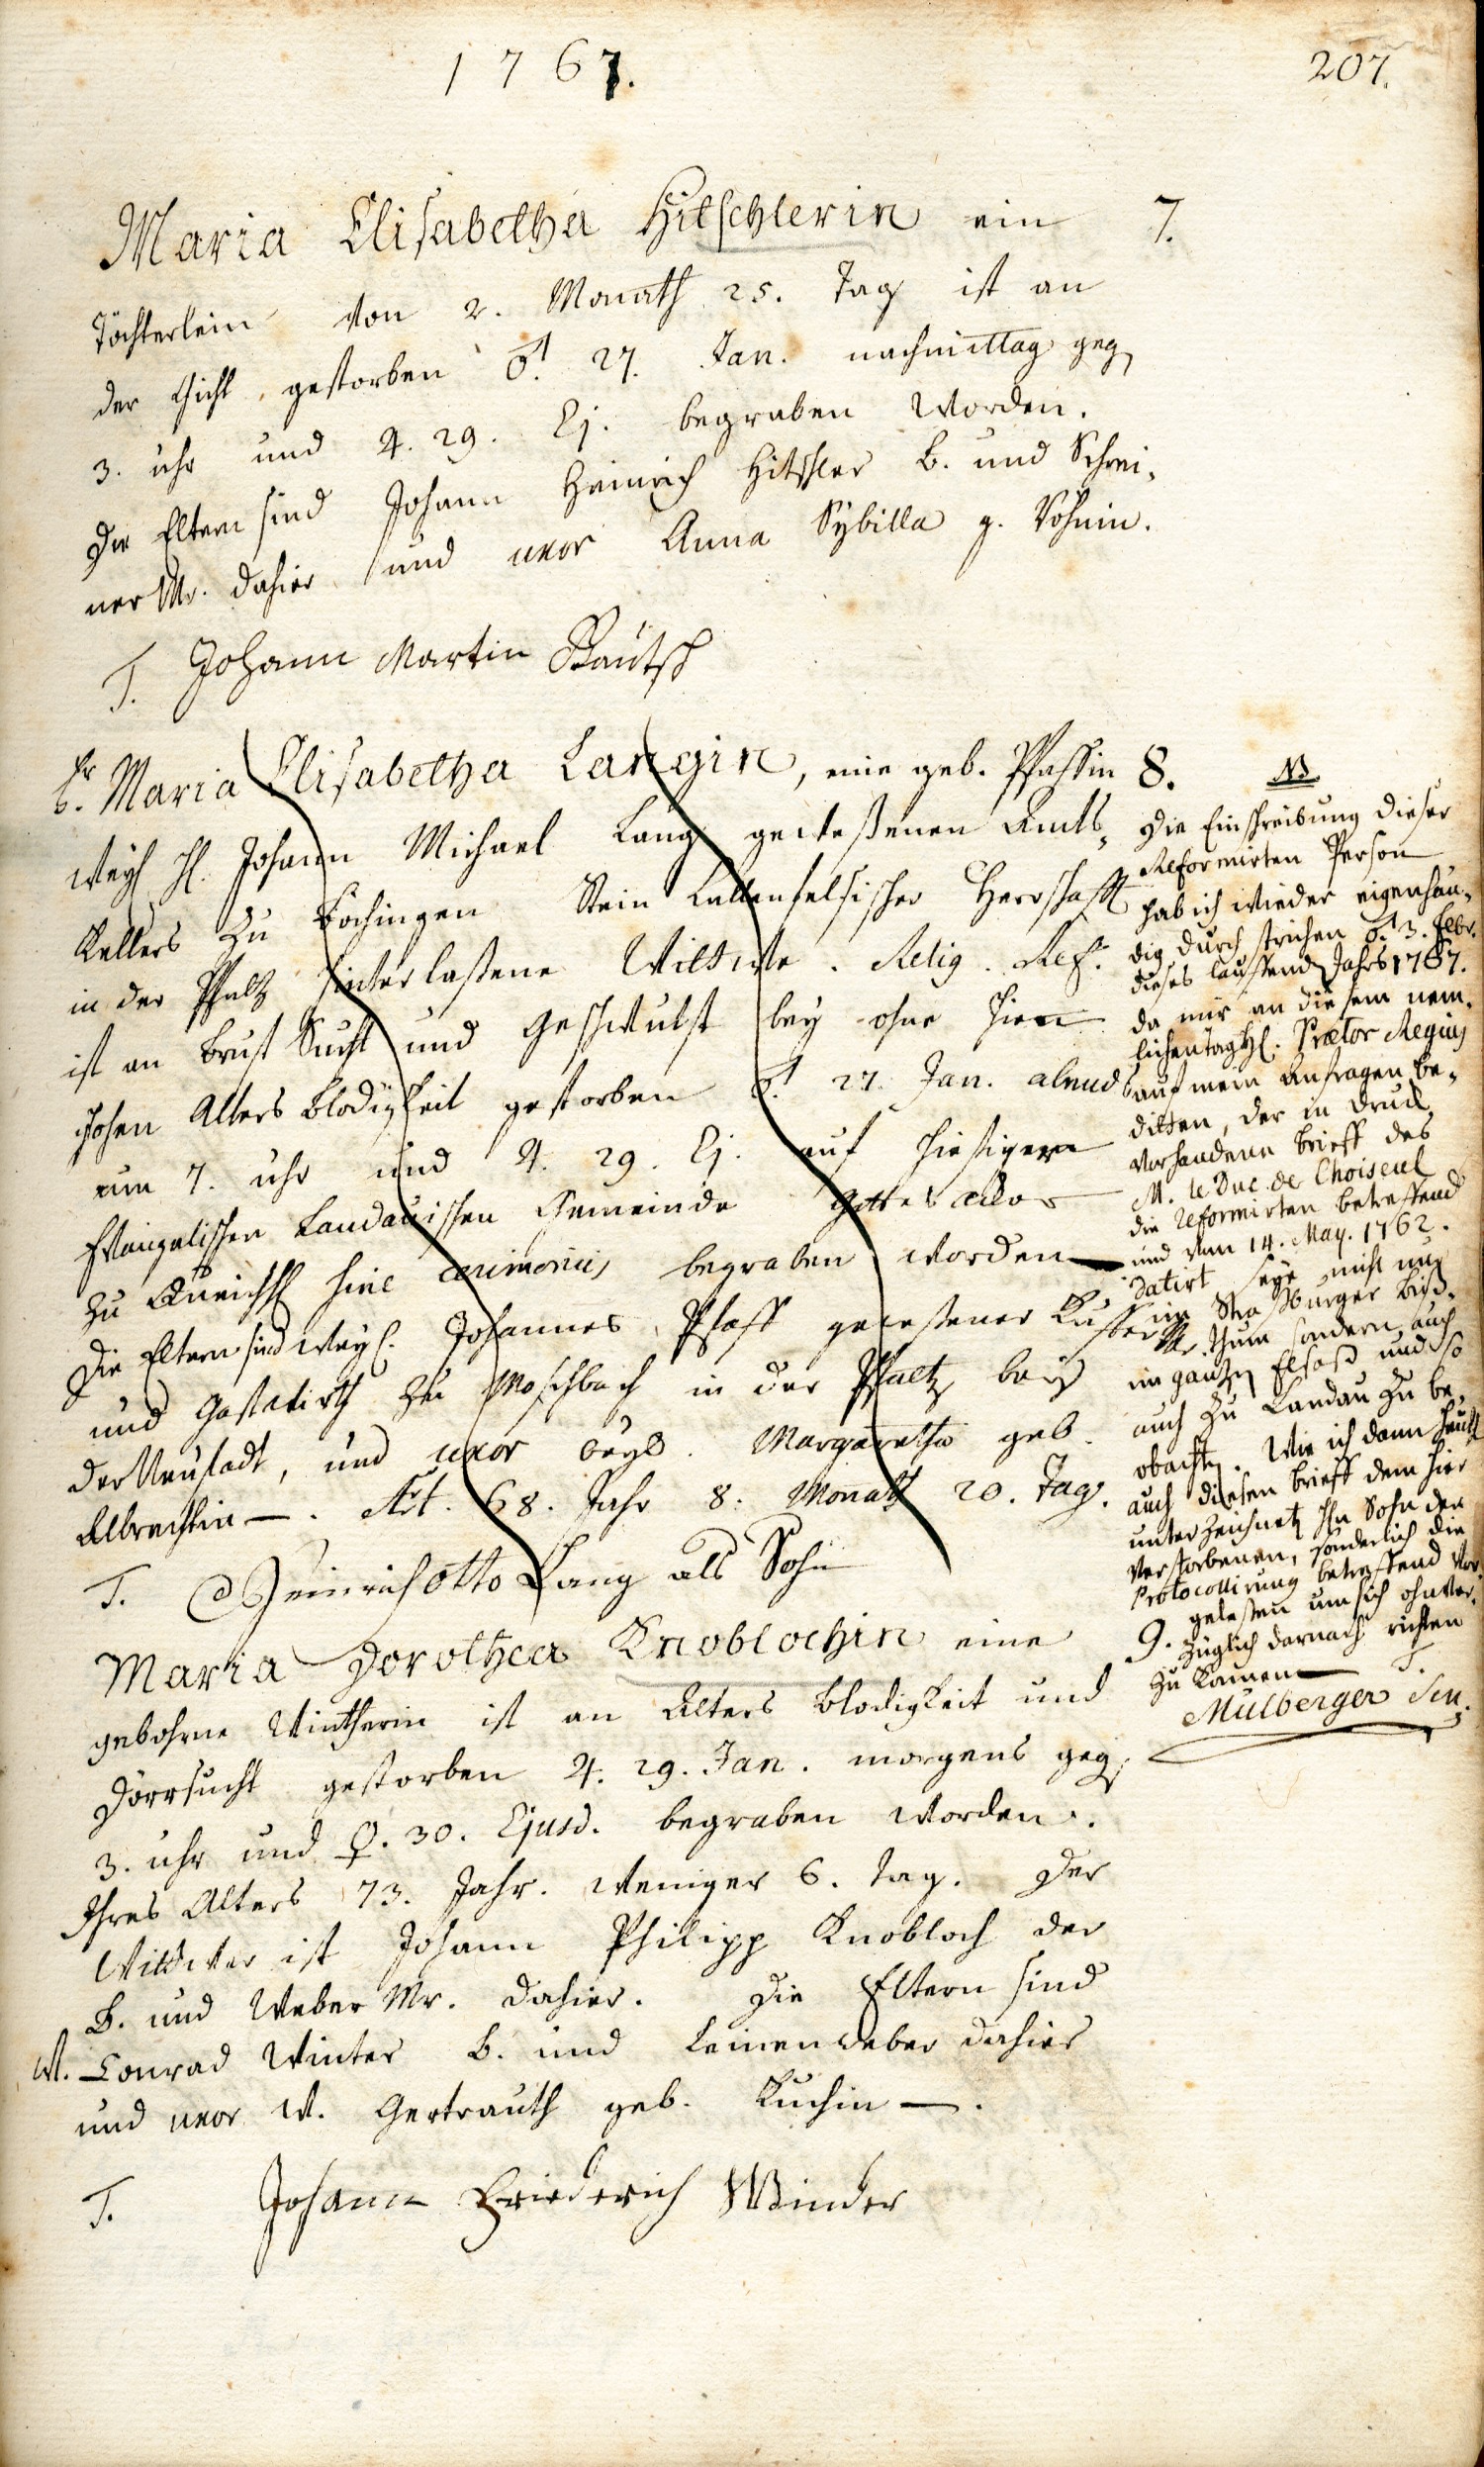 1767.
207.
Maria Elisabetha Hitschlerin ein
7.
Töchterlein von 2. Monath 25. Tag ist an
der Gicht gestorben ♂. 27. Jan. nachmittag geg
3. uhr und ♃. 29. Ej. begraben worden.
Die Eltern sind Johann Heinrich Hitschler B. und Schrei„
ner Mr. dahier und uxor Anna Sybilla g. Böhmin.
T. Johann Martin Bautsch
Fr. Maria Elisabetha Langin, eine geb. Pfaffin
8.
weyl. H. Johann Michael Lang geweßenen Amts„
Kellers zu Böchingen Stein Kallenfelsischer Herrschafft
in der Pfaltz hinterlaßene Wittwe. Relig. Ref.
ist an Brust Sucht und Geschwulst bey ohne hien
hohen Alters Blödigkeit gestorben ♂. 27. Jan. abends
um 7. uhr und ♃. 29. Ej. auf hiesigem
Evangelischen Landauischen Gemeinde Gottes acker
zu Queichh. sine cerimoniis begraben worden
Die Eltern sind weyl. Johannes Pfaff geweßener Kuffer Mr.
und Gastwirth zu Moschbach in der Pfaltz bey
der Neustadt, und uxor weyl. Margaretha geb.
Albrechtin —. Aet. 68. Jahr 8. Monath 20. Tag.
T. Heinrich Otto Lang als Sohn
NB
Die Einschreibung dieser
Reformirten Person
hab ich wieder eigenhän„
dig durchstrichen ♂. 3. Febr.
dieses lauffend Jahrs 1767.
da mir an diesem nem„
lichen Tag H. Prætor Regius
auf mein Anfragen be„
ditten, der in druck
vorhandene Brieff des
M. le Duc de Choiseul
die Reformirten betreffend
und vom 14. May. 1762.
datirt seye nicht nur
im Straßburger Biß„
thum sondern auch
im gantzen Elsaß und so
auch zu Landau zu be„
obachten. Wie ich dann heut
auch diesen Brieff dem hier
unterzeichneten Hn Sohn der
Verstorbenen, sonderlich die
Protocollirung betreffend vor„
gelesen um sich ohnver„
züglich darnach richten
zu können T.
Mülberger Sen.
Maria Dorothea Knoblochin eine
9.
gebohrne Wintherin ist an Alters Blödigkeit und
Dörrsucht gestorben ♃. 29. Jan. morgens geg.
3. uhr und ♀. 30. Ejusd. begraben worden.
Ihres Alters 73. Jahr. weniger 6. Tag. Der
Wittwer ist Johann Philipp Knobloch der
B. und Weber Mr. dahier. Die Eltern sind
W. Conrad Winter B. und Leinenweber dahier
und uxor W. Gertrauth geb. Kuchin —.
T. Johann Friederich Winder